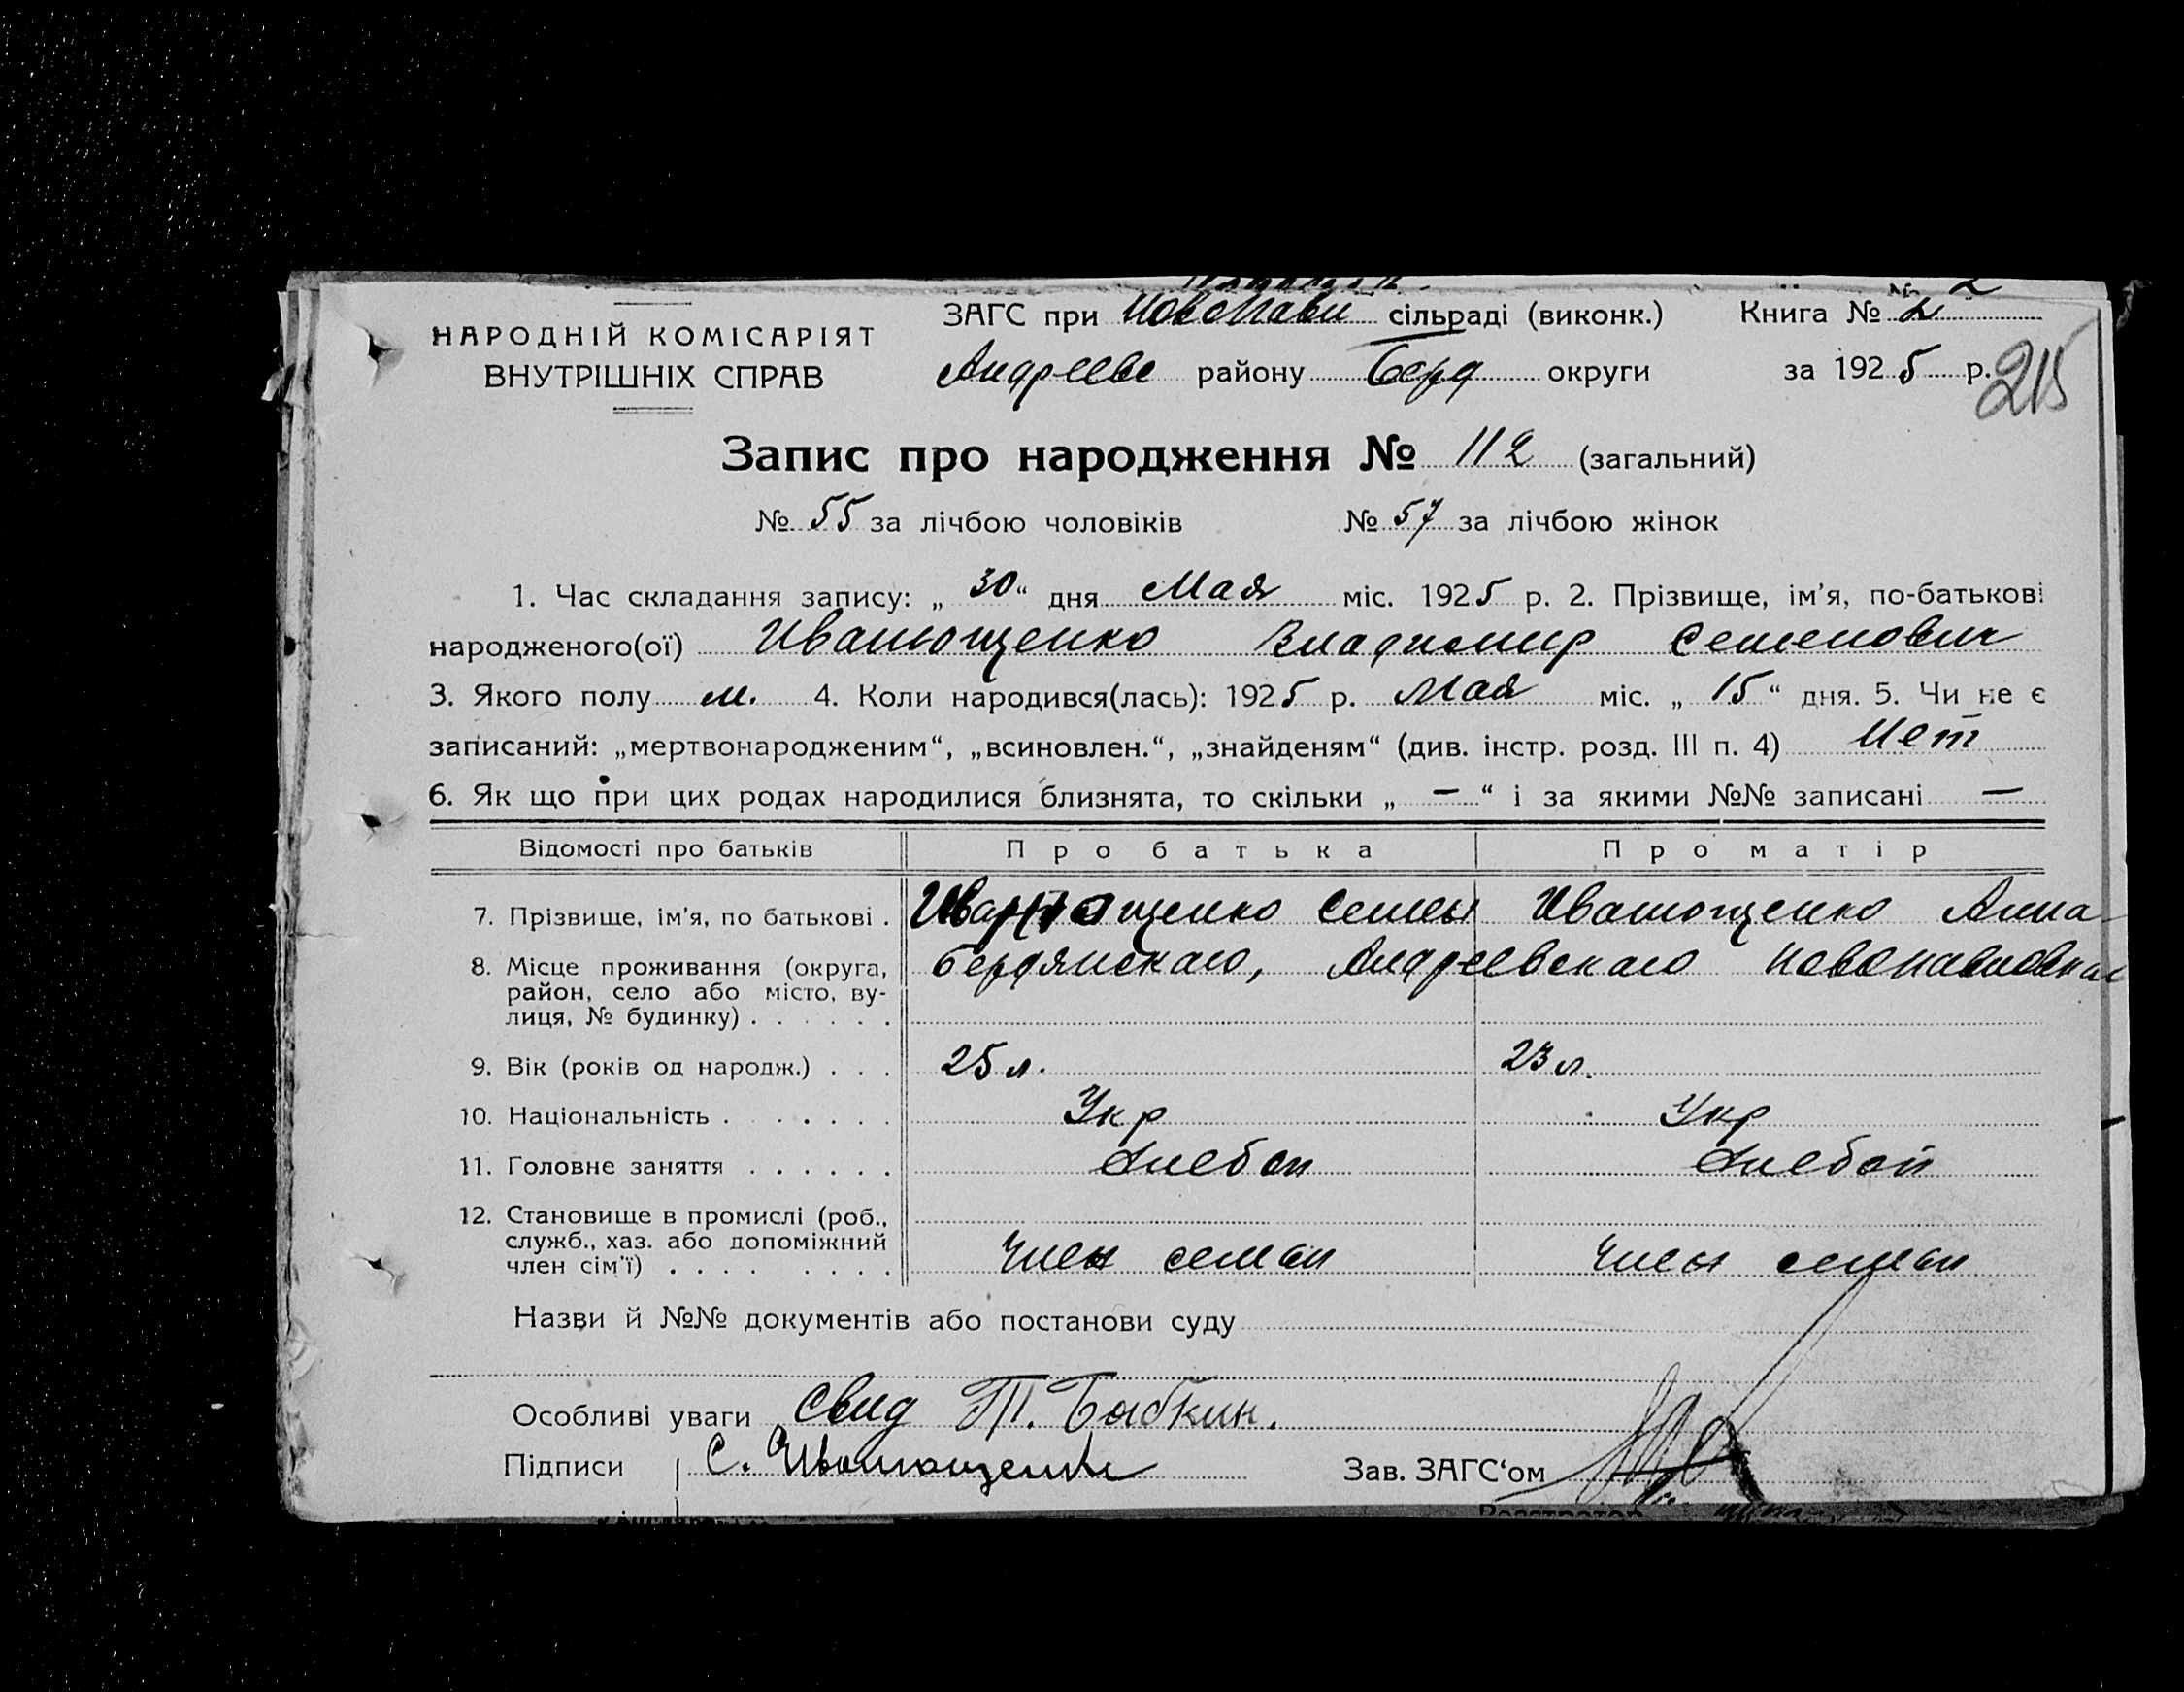 НАРОДНІЙ КОМІСАРІЯТ
ВНУТРІШНІХ СПРАВ
ЗАГС при Новопавл сільраді (виконк.) Книга № 2
Андреевс району Берд округи за 1925 р.
215
Запис про народження № 112 (загальний)
№ 55 за лічбою чоловіків № 57 за лічбою жінок
1. Час складання запису: „ 30 “ дня Мая міс. 1925 р. 2. Прізвище, ім'я, по-батькові
народженого(ої) Иванющенко Владимир Семенович
3. Якого полу м. 4. Коли народився(лась): 1925 р. Мая міс. „ 15 “ дня. 5. Чи не є
записаний: „мертвонародженим“, „всиновлен.“, „знайденям“ (див. інстр. розд. III п. 4) Нет
6. Як що при цих родах народилися близнята, то скільки „ — “ і за якими №№ записані —
Відомості про батьків Про батька Про матір
7. Прізвище, ім'я, по батькові . Иванющенко Семен Иванющенко Анна
8. Місце проживання (округа, Бердянскаго, Андреевскаго Новопавловка
район, село або місто, ву-
лиця, № будинку) . . . . . .
9. Вік (років од народж.) . . . 25 л. 23 л.
10. Національність . . . . . . . Укр Укр
11. Головне заняття . . . . . . Хлебоп Хлебоп
12. Становище в промислі (роб.,
служб., хаз. або допоміжний
член сім'ї) . . . . . . . . Член семьи Член семьи
Назви й №№ документів або постанови суду
Особливі уваги Свид Т. Бабкин.
Підписи С. Иванющенко Зав. ЗАГС‘ом